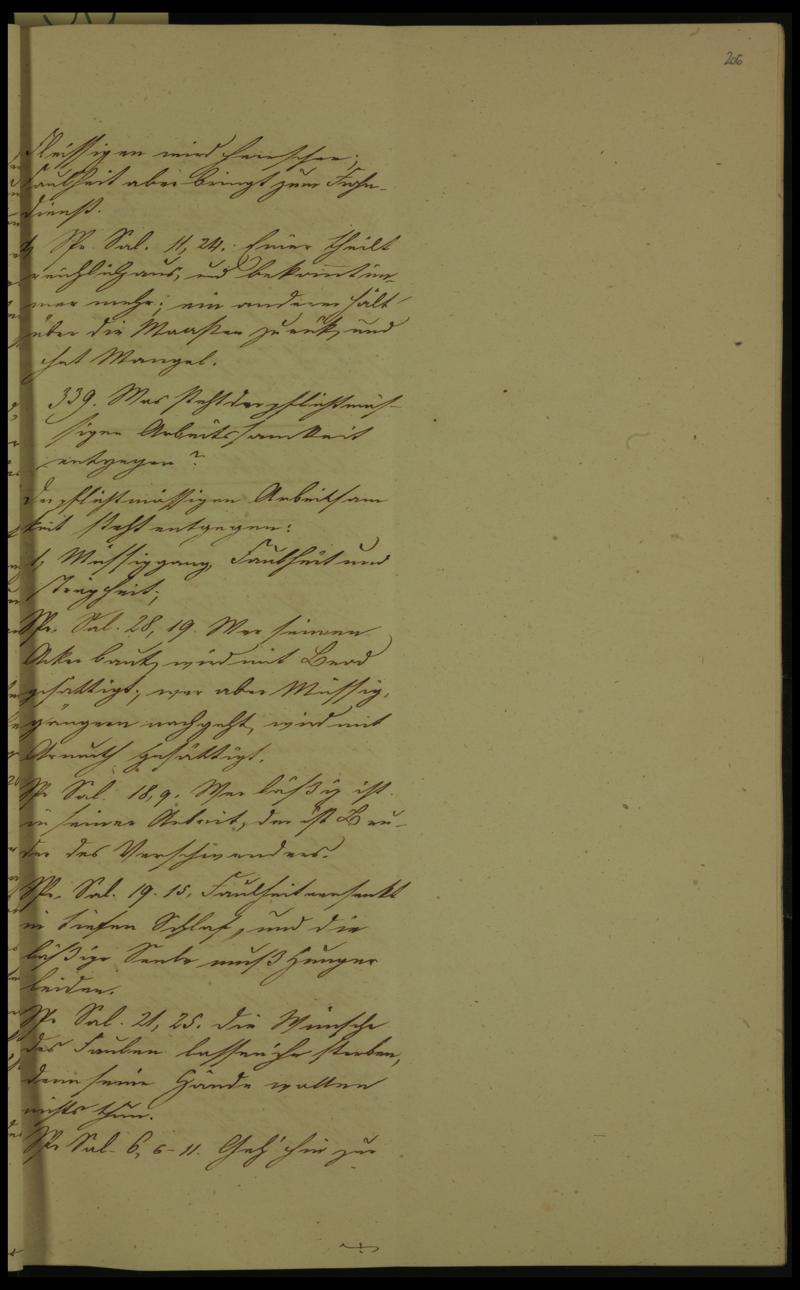 206
Fleissigen wird herrschen;
Faulheit aber bringt zum Frohn-
dienst.
Spr. Sal. 11, 24.: Einer theilt
reichlich aus, und bekommt im-
mer mehr; ein anderer hält
über die Maassen zurük, und
hat Mangel.
339. Was steht der pflichtmäs-
sigen Arbeitssamkeit
entgegen?
Der pflichtmässigen Arbeitsam
keit steht entgegen:
1, Müssiggang, Faulheit und
Trägheit;
Spr. Sal. 28, 19. Wer seinen
Aker baut, wird mit Brod
gesättigt; wer aber Müssig,
gängern nachgeht, wird mit
Armuth gesättigt.
Spr Sal. 18, 9. Wer läßig ist
in seiner Arbeit, der ist Bru-
der des Verschwenders.
Spr. Sal. 19. 15. Faulheit versenkt
in tiefen Schlaf, und die
läßige Seele muß Hunger
leiden.
Spr Sal. 21, 25. Die Wünsche
des Faulen lassen ihn sterben,
denn seine Hände wollen
nichts thun.
Spr Sal. 6, 6-11. Geh' hin zur